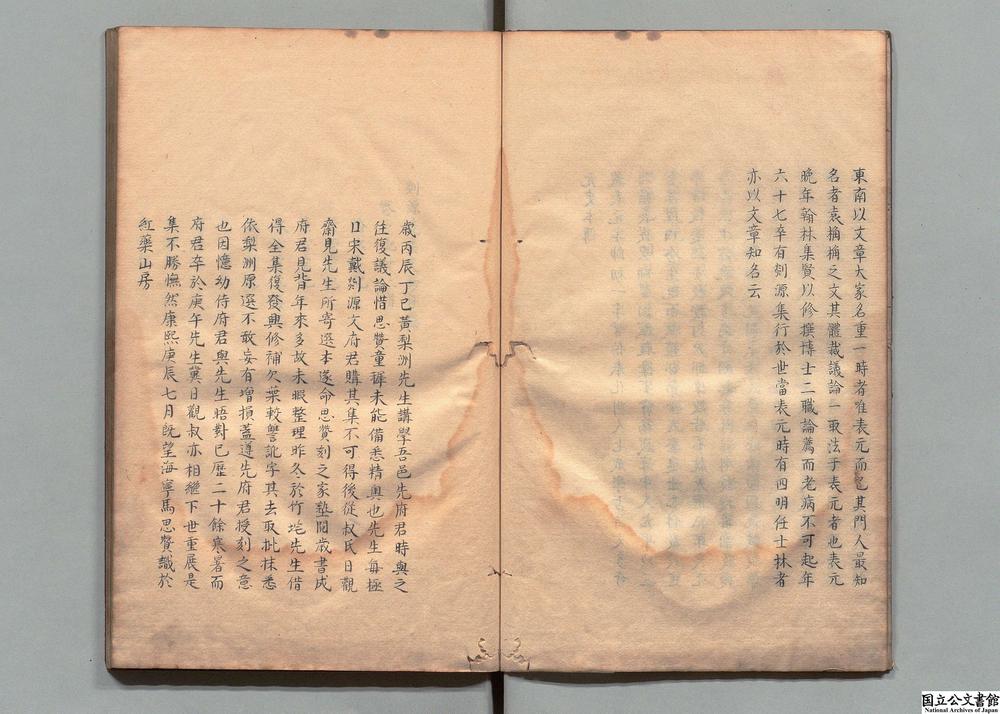 東南以文章大家名重一時者唯表元而已其門人最知
名者袁桷桷之文其體裁議論一取法于表元者也表元
晩年翰林集賢以修撰博士二職論薦而老病不可起年
六十七卒有剡源集行於世當表元時有四明任士林者
亦以文章知名云
歲丙辰丁巳黃梨洲先生講學吾邑先府君時與之
往復議論惜思贊童穉未能備悉精奧也先生每極
口宋戴剡源文府君購其集不可得後從叔氏日觀
齋見先生所寄選本遂命思贊刻之家塾閱歲書成
府君見背年來多故未暇整理昨冬於竹垞先生借
得全集復發興修補欠葉較讐訛字其去取批抹悉
依梨洲原選不敢妄有增損蓋遵先府君授刻之意
也因憶幼侍府君與先生晤對已歷二十餘寒暑而
府君卒於庚午先生蘽日觀叔亦相繼下世重展是
集不勝憮然康熙庚辰七月既望海寧馬思贊識於
紅藥山房
国立公文書館
National Archives of Japan